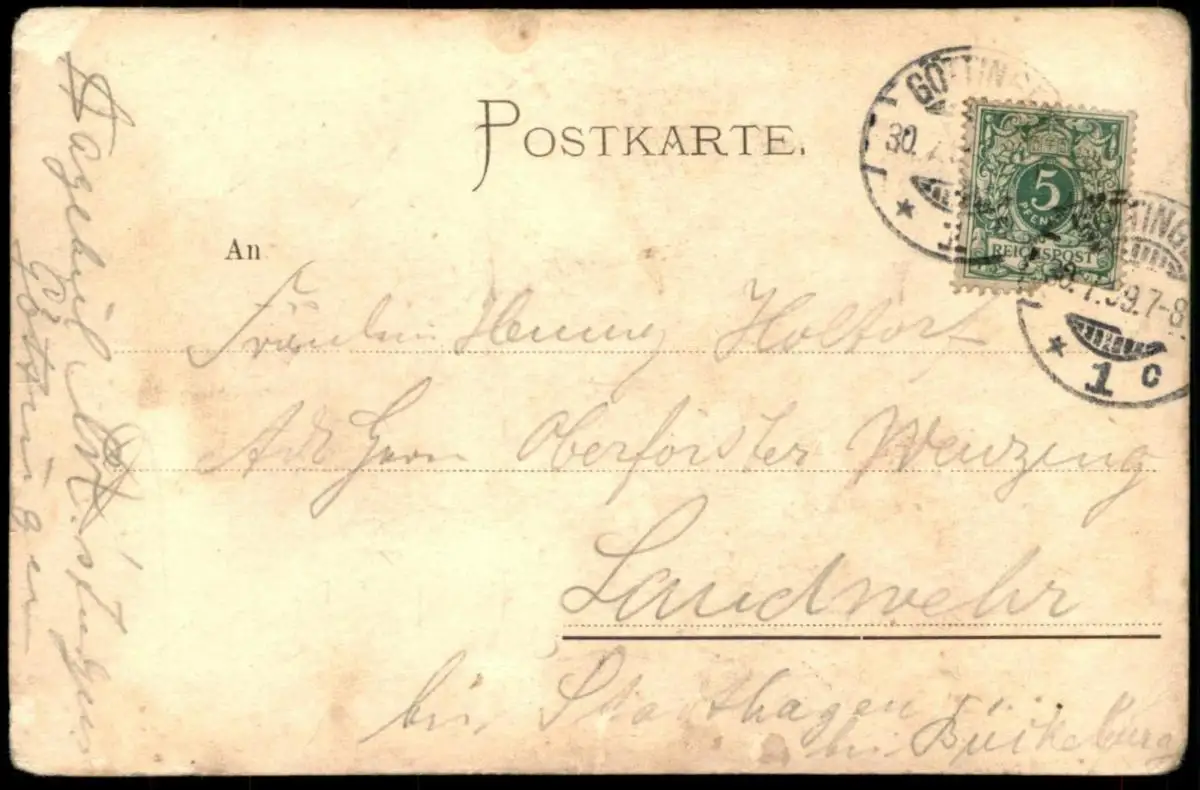 POSTKARTE.
GÖTTINGEN
30.7.
5
PFENNIG
REICHSPOST
GÖTTINGEN
30.7.99.7-8
1 c
An
Fräulein Henny Holtorf
Adr Herrn Oberförster
Landwehr
bei Stadthagen
bei Bückeburg
Göttingen